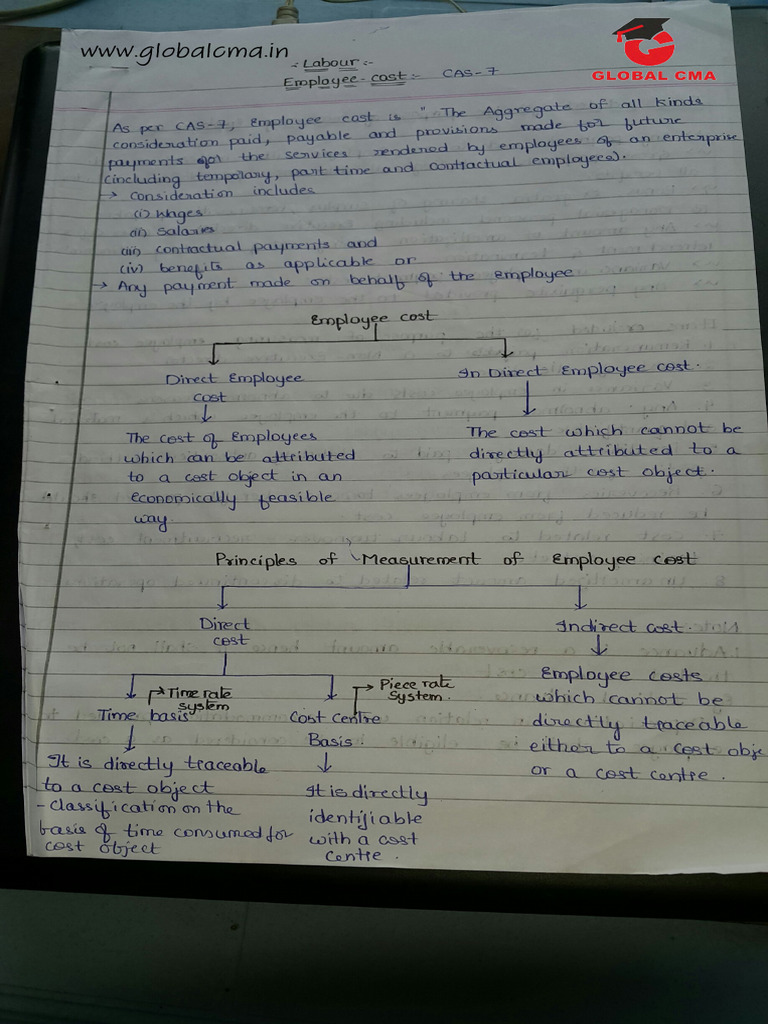 www.globalcma.in
GLOBAL CMA
:- Labour :-
Employee-cost :- CAS-7
As per CAS-7, Employee cost is "The Aggregate of all kinds
consideration paid, payable and provisions made for future
payments for the services rendered by employees of an enterprise
(including temporary, part time and contractual employees).
→ Consideration includes
(i) Wages
(ii) Salaries
(iii) contractual payments and
(iv) benefits as applicable or
→ Any payment made on behalf of the employee
Employee cost
Direct Employee
cost
The cost of Employees
which can be attributed
to a cost object in an
economically feasible
way.
In Direct Employee cost.
The cost which cannot be
directly attributed to a
particular cost object.
Principles of Measurement of Employee cost
Direct
cost
→ Time rate
system
Time basis
It is directly traceable
to a cost object
- Classification on the
basis of time consumed for
cost object
→ Piece rate
System.
Cost Centre
Basis.
It is directly
identifiable
with a cost
centre.
Indirect cost.
Employee costs
which cannot be
directly traceable
either to a cost obje
or a cost centre.